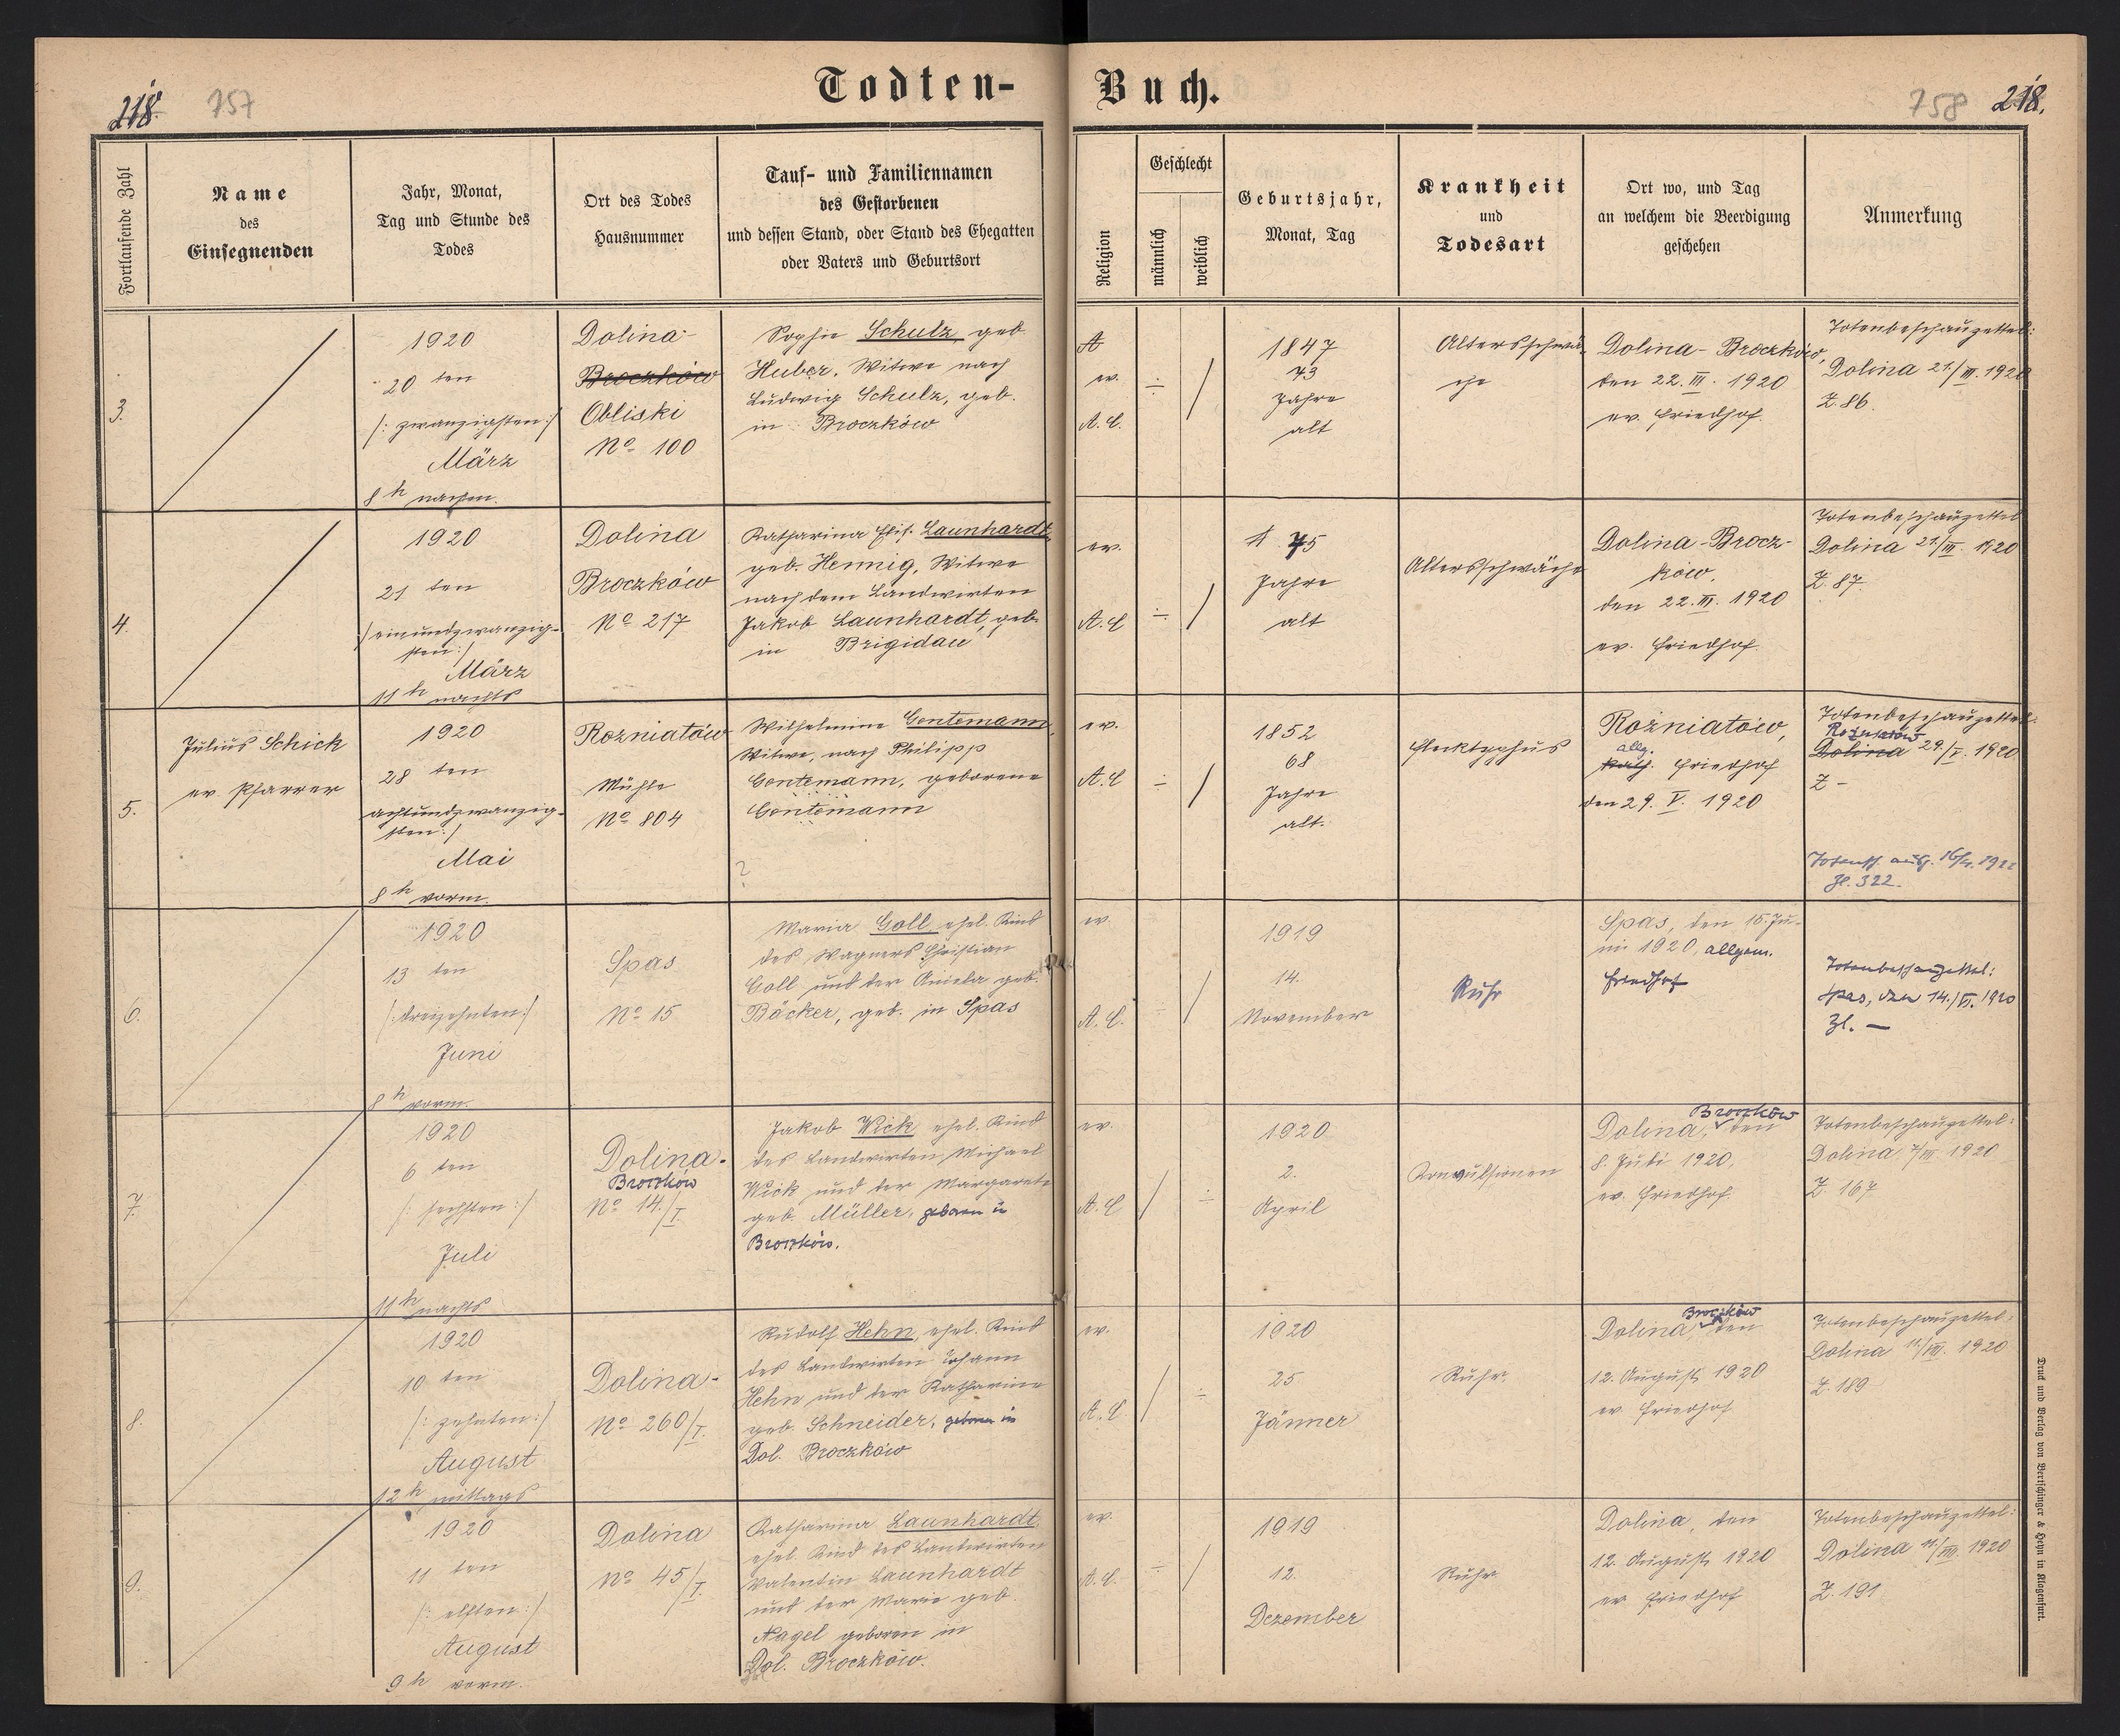 218. 757
Todten-
Buch.
758 218.
Fortlaufende Zahl
Name
des
Einsegnenden
Jahr, Monat,
Tag und Stunde des
Todes
Ort des Todes
Hausnummer
Tauf- und Familiennamen
des Gestorbenen
und dessen Stand, oder Stand des Ehegatten
oder Vaters und Geburtsort
Religion
Geschlecht
männlich
weiblich
Geburtsjahr,
Monat, Tag
Krankheit
und
Todesart
Ort wo, und Tag
an welchem die Beerdigung
geschehen
Anmerkung
3.
1920
20 ten
/: zwanzigsten :/
März
8 h nachm.
Dolina-
Broczków
Obliski
No 100
Sophie Schulz geb.
Huber, Witwe nach
Ludwig Schulz, geb.
in Broczków
A
ev.
A. C.
1847
73
Jahre
alt
Altersschwä-
che
Dolina-Broczków,
den 22. III. 1920
ev. Friedhof.
Totenbeschauzettel:
Dolina 21./III. 1920
Z. 86.
4.
1920
21 ten
/: einundzwanzig-
sten :/
März
11 h nachts
Dolina
Broczków
No 217
Katharina Elis. Launhardt,
geb. Hennig, Witwe
nach dem Landwirten
Jakob Launhardt, geb.
in Brigidau
ev.
A. C.
75
Jahre
alt
Altersschwäche
Dolina-Brocz-
ków,
den 22. III. 1920
ev. Friedhof.
Totenbeschauzettel
Dolina 21./III. 1920
Z. 87.
5.
Julius Schick
ev. Pfarrer
1920
28 ten
achtundzwanzig-
sten :/
Mai
8 h vorm.
Rozniatów
Mühle
No 804
Wilhelmine Gentemann,
Witwe, nach Philipp
Gentemann, geborene
Gentemann
?
ev.
A. C.
1852
68
Jahre
alt.
Flecktyphus
Rożniatów,
allg.
kath. Friedhof
den 29. V. 1920
Totenbeschauzettel:
Rożniatów
Dolina 29./V. 1920
Z -
Zl. 322.
6.
1920
13 ten
/: dreizehnten :/
Juni
8 h vorm.
Spas
No 15
Maria Goll ehel. Kind
des Wagners Christian
Goll und der Aniela geb.
Bäcker, geb. in Spas
ev.
A. C.
1919
14.
November
Ruhr
Spas, den 15. Ju-
ni 1920, allgem.
Friedhof
Totenbeschauzettel:
Spas, den 14./VI. 1920
Zl. —
7.
1920
6 ten
/: sechsten :/
Juli
11 h nachts
Dolina-
Broczków
No 14./I.
Jakob Wick ehel. Kind
des Landwirten Michael
Wick und der Margarete
geb. Müller, geboren in
Broczków.
ev.
A. C.
1920
2.
April
Konvulsionen
Broczków
Dolina, den
8. Juli 1920,
ev. Friedhof.
Totenbeschauzettel:
Dolina 7/VII 1920
Z. 167
8.
1920
10 ten
/: zehnten :/
August
12 h mittags
Dolina-
No 260/I.
Rudolf Hehn, ehel. Kind
des Landwirten Johann
Hehn und der Katharine
geb. Schneider, geboren in
Dol. Broczków
ev.
A. C.
1920
25.
Jänner
Ruhr.
Broczków
Dolina, den
12. August 1920
ev. Friedhof
Totenbeschauzettel:
Dolina 11/VIII. 1920
Z. 189
9.
1920
11 ten
/: elften :/
August
9 h vorm.
Dolina
No 45/I.
Katharina Launhardt,
ehel. Kind des Landwirten
Valentin Launhardt
und der Marie geb.
Nagel geboren in
Dol. Broczków.
ev.
A. C.
1919
12.
Dezember
Ruhr
Dolina, den
12. August 1920
ev. Friedhof
Totenbeschauzettel:
Dolina 11/VIII. 1920
Z. 191
Druck und Verlag von Bertschinger & Heyn in Klagenfurt.